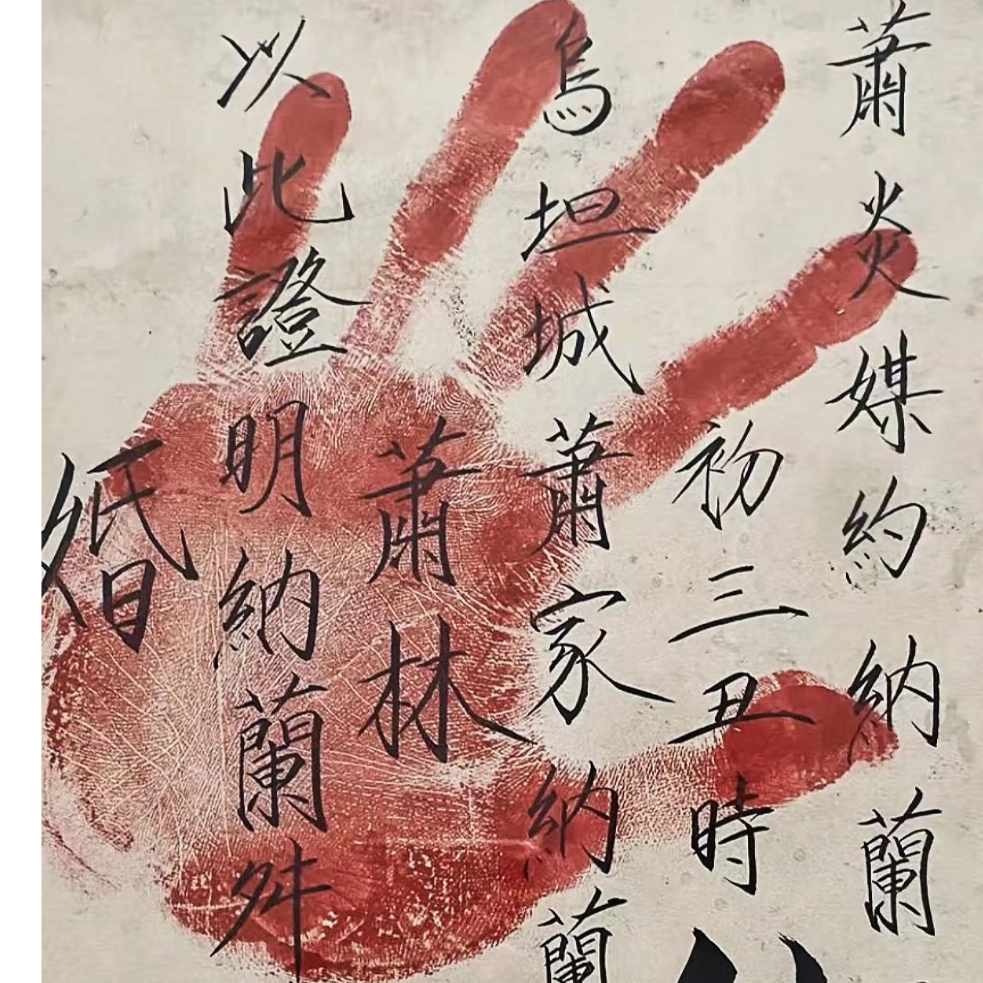 蕭炎媒約 納蘭
初三丑時
烏坦城蕭家納蘭
蕭林
以此證明納蘭
婚